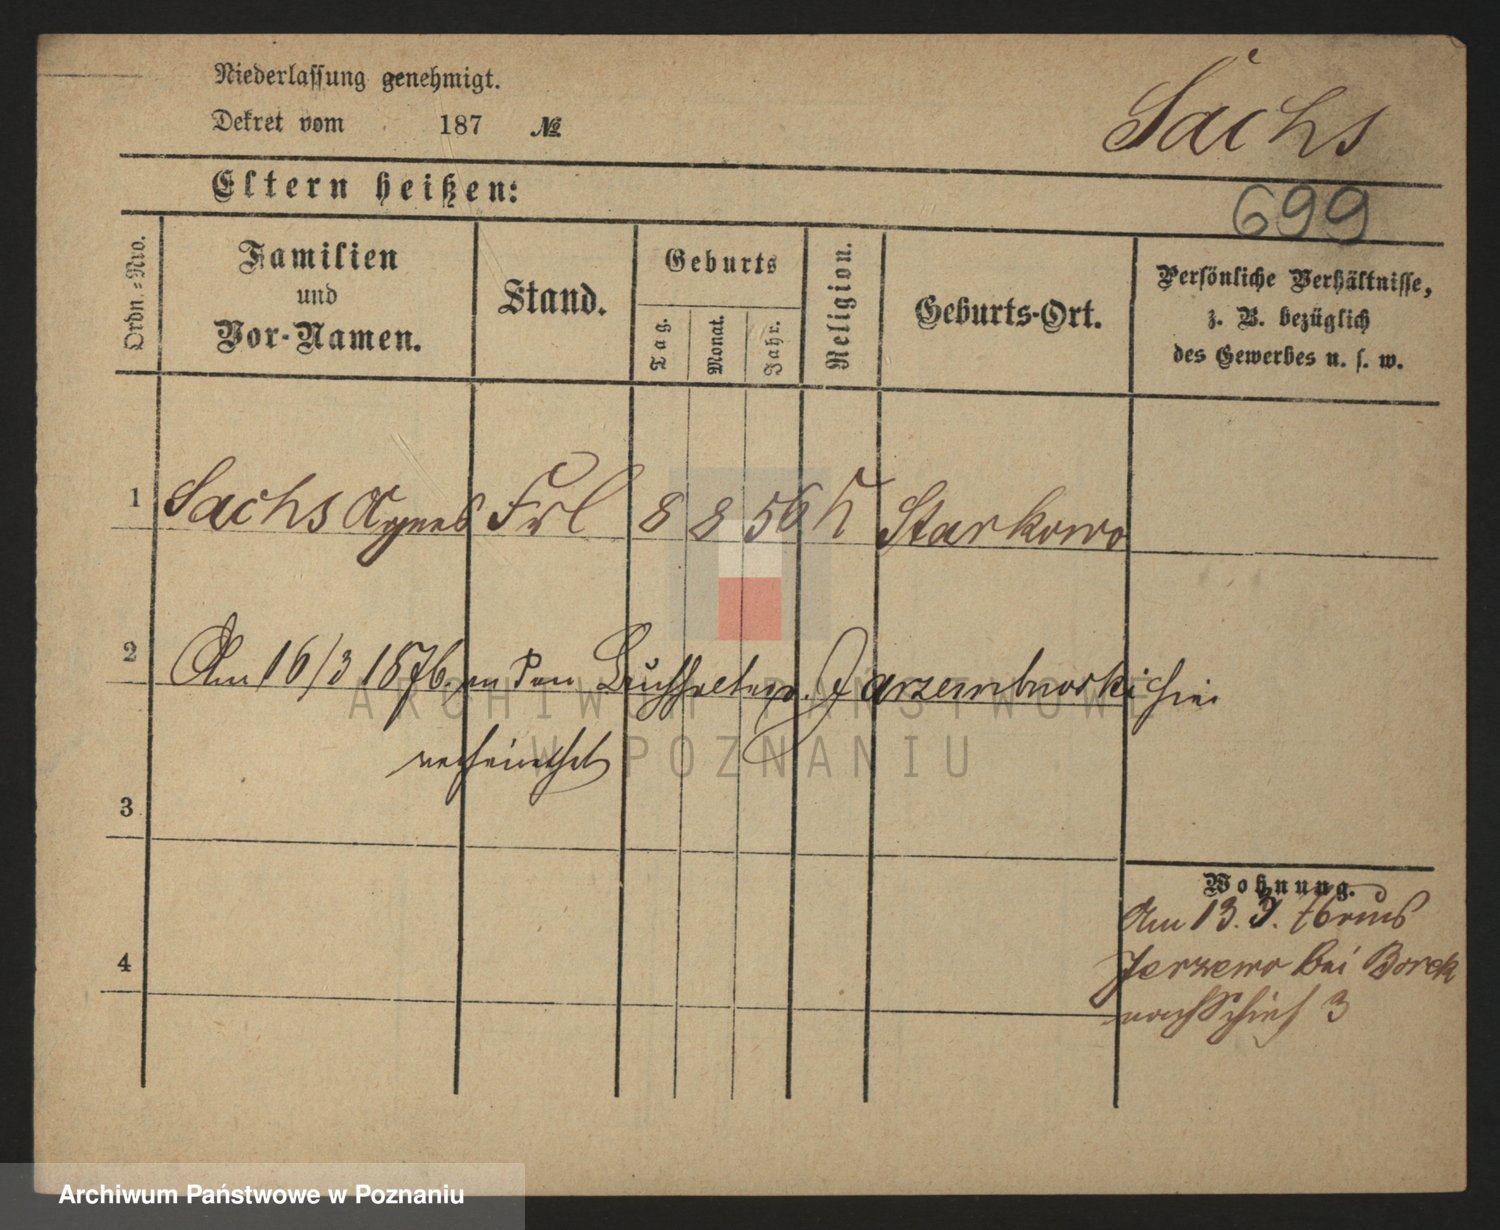 Niederlassung genehmigt.
Dekret vom 187 №
Sachs
Eltern heißen:
699
Ordn.-Nro.
Familien
und
Vor-Namen.
Stand.
Geburts
Tag.
Monat.
Jahr.
Religion.
Geburts-Ort.
Persönliche Verhältnisse,
z. B. bezüglich
des Gewerbes u. s. w.
1 Sachs Agnes Frl 8 8 56 k Starkowo
2 Am 16/3 1876 an den Buchhalter Jarzembowski hier
verheirathet
3
Wohnung.
Am 13. 3. 76
Jerzewo bei Borek
4
3
ARCHIWUM PAŃSTWOWE
W POZNANIU
Archiwum Państwowe w Poznaniu